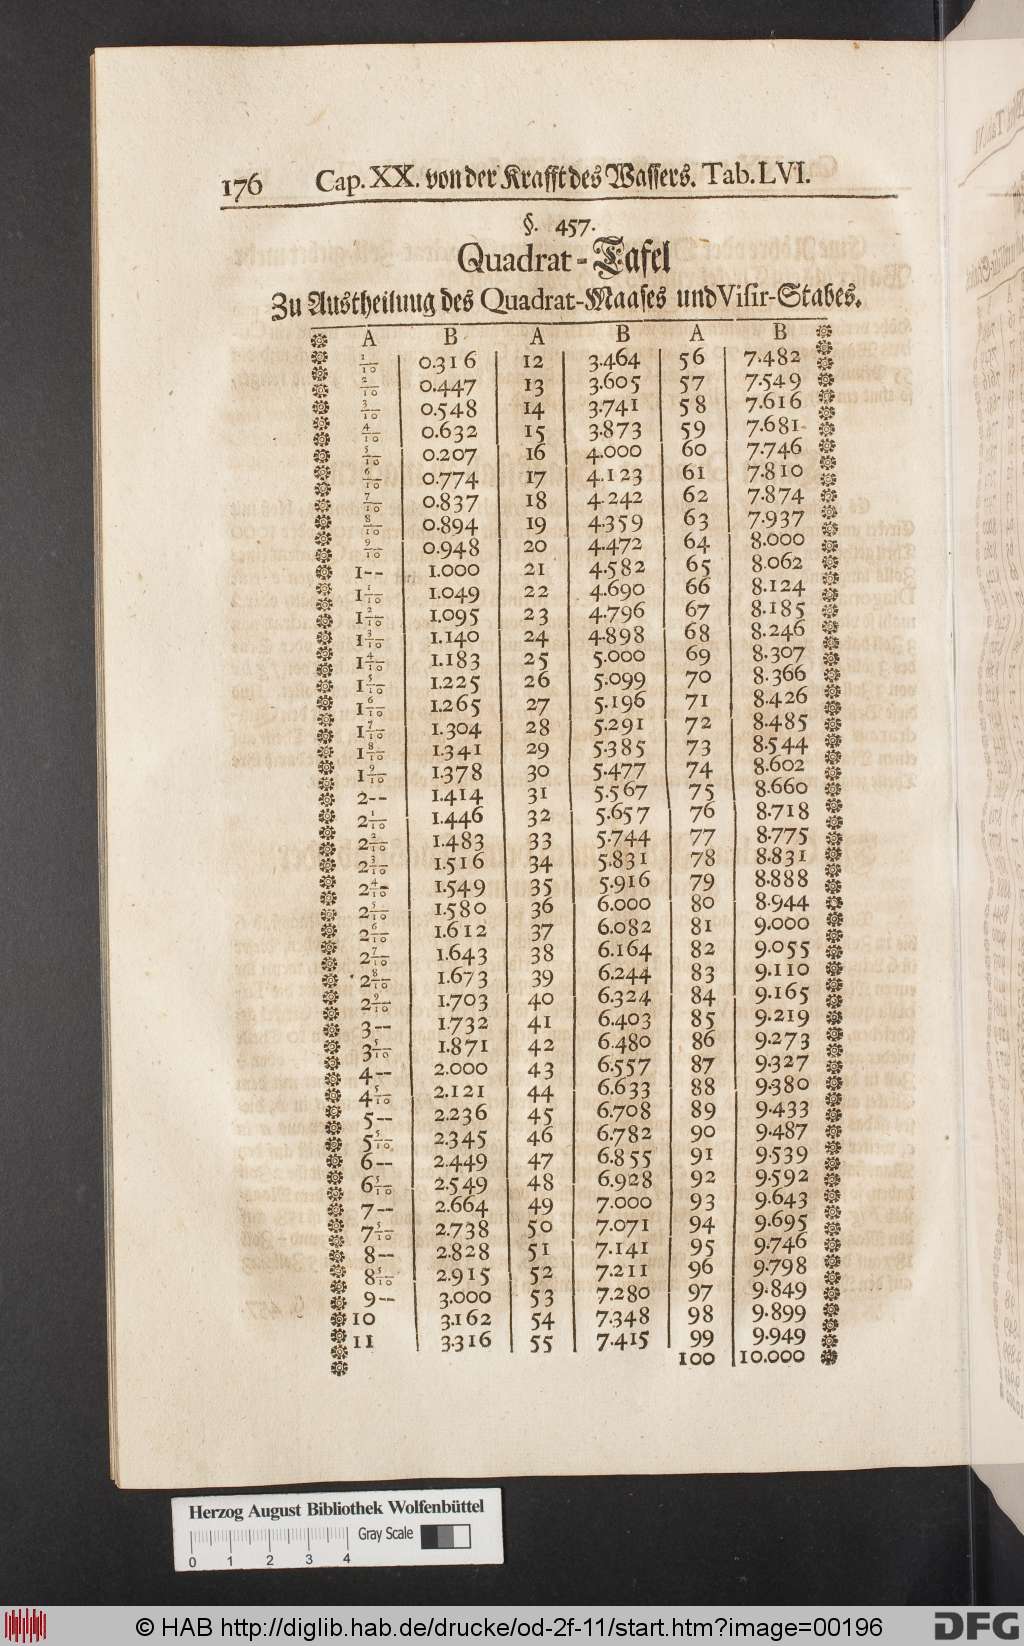 176 Cap. XX. von der Krafft des Wassers. Tab. LVI.
§. 457.
Quadrat-Tafel
Zu Austheilung des Quadrat-Maases und Visir-Stabes.
A B A B A B
1/10 0.316 12 3.464 56 7.482
2/10 0.447 13 3.605 57 7.549
3/10 0.548 14 3.741 58 7.616
4/10 0.632 15 3.873 59 7.681
5/10 0.207 16 4.000 60 7.746
6/10 0.774 17 4.123 61 7.810
7/10 0.837 18 4.242 62 7.874
8/10 0.894 19 4.359 63 7.937
9/10 0.948 20 4.472 64 8.000
1-- 1.000 21 4.582 65 8.062
1 1/10 1.049 22 4.690 66 8.124
1 2/10 1.095 23 4.796 67 8.185
1 3/10 1.140 24 4.898 68 8.246
1 4/10 1.183 25 5.000 69 8.307
1 5/10 1.225 26 5.099 70 8.366
1 6/10 1.265 27 5.196 71 8.426
1 7/10 1.304 28 5.291 72 8.485
1 8/10 1.341 29 5.385 73 8.544
1 9/10 1.378 30 5.477 74 8.602
2-- 1.414 31 5.567 75 8.660
2 1/10 1.446 32 5.657 76 8.718
2 2/10 1.483 33 5.744 77 8.775
2 3/10 1.516 34 5.831 78 8.831
2 4/- 1.549 35 5.916 79 8.888
2 5/10 1.580 36 6.000 80 8.944
2 6/10 1.612 37 6.082 81 9.000
2 7/10 1.643 38 6.164 82 9.055
2 8/10 1.673 39 6.244 83 9.110
2 9/10 1.703 40 6.324 84 9.165
3-- 1.732 41 6.403 85 9.219
3 5/10 1.871 42 6.480 86 9.273
4-- 2.000 43 6.557 87 9.327
4 5/10 2.121 44 6.633 88 9.380
5-- 2.236 45 6.708 89 9.433
5 5/10 2.345 46 6.782 90 9.487
6-- 2.449 47 6.855 91 9.539
6 5/10 2.549 48 6.928 92 9.592
7-- 2.664 49 7.000 93 9.643
7 5/10 2.738 50 7.071 94 9.695
8-- 2.828 51 7.141 95 9.746
8 5/10 2.915 52 7.211 96 9.798
9-- 3.000 53 7.280 97 9.849
10 3.162 54 7.348 98 9.899
11 3.316 55 7.415 99 9.949
100 10.000
Herzog August Bibliothek Wolfenbüttel
Gray Scale
0 1 2 3 4
© HAB http://diglib.hab.de/drucke/od-2f-11/start.htm?image=00196
DFG